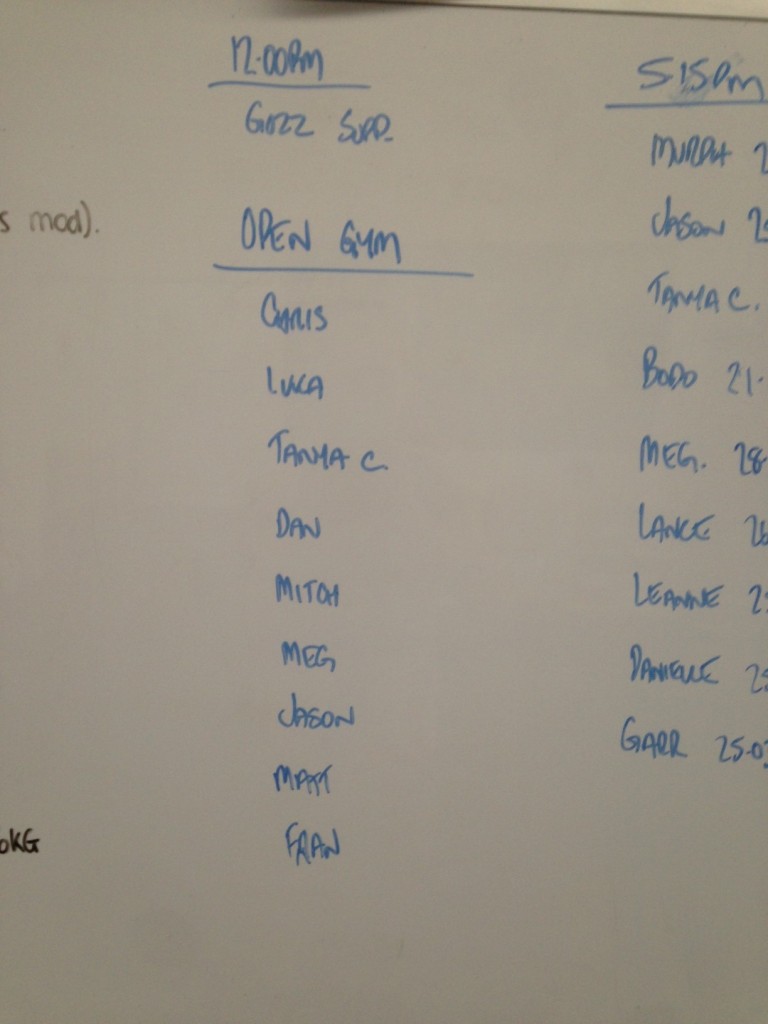 12.00PM
GIZZ SUPP.
s mod).
OPEN GYM
CHRIS
LUKA
TANYA C.
DAN
MITCH
MEG
JASON
MATT
FRAN
0KG
515PM
MURPH 2
JASON 25
TANYA C.
BODO 21.
MEG. 28
LANCE 26
LEANNE 2
DANIELLE 25
GARR 25.0